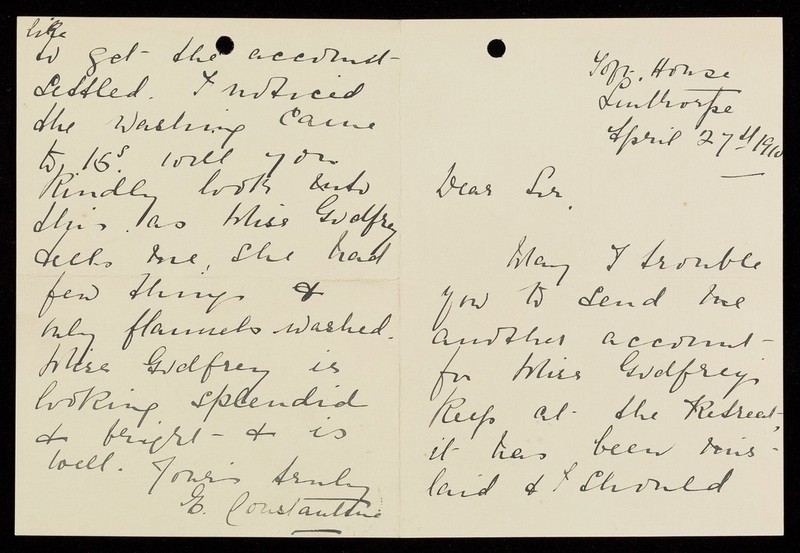 House
Linthorpe
April 27th 1910
Dear Sir,
May I trouble
you to send me
another account
for Miss Godfrey's
keep at the Retreat,
it has been mis-
laid & I should
like
to get the account
settled. I noticed
the washing came
to 15s. will you
kindly look into
this, as Miss Godfrey
tells me, she had
few things &
only flannels washed.
Miss Godfrey is
looking splendid
& bright & is
well. Yours truly
E. Constantine